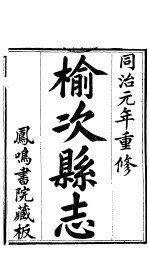 同治元年重修
榆次縣志
鳳鳴書院藏板